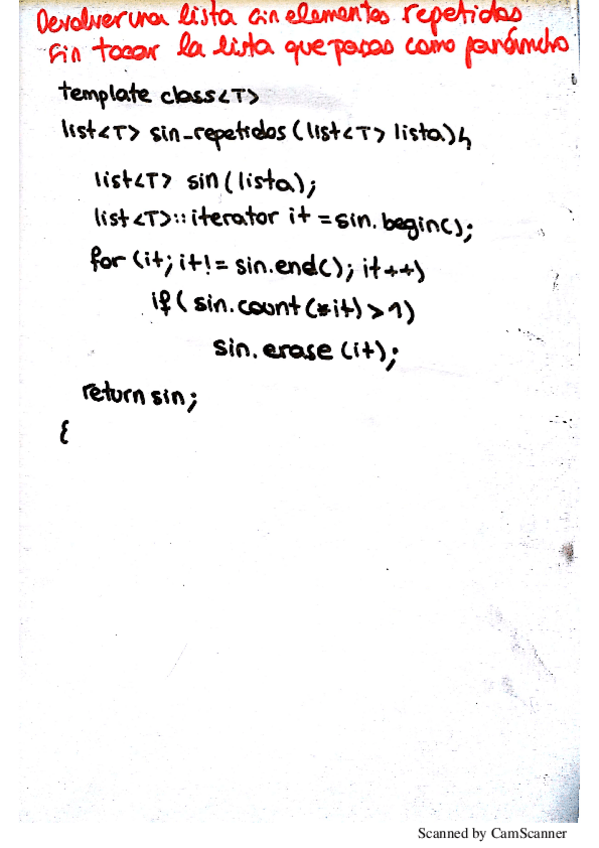 Devolver una lista sin elementos repetidos
sin tocar la lista que pasas como parámetro
template class<T>
list<T> sin_repetidos (list<T> lista){
list<T> sin(lista);
list<T>::iterator it = sin.begin();
for (it; it != sin.end(); it++)
if ( sin.count (*it) > 1)
sin. erase (it);
return sin;
{
Scanned by CamScanner